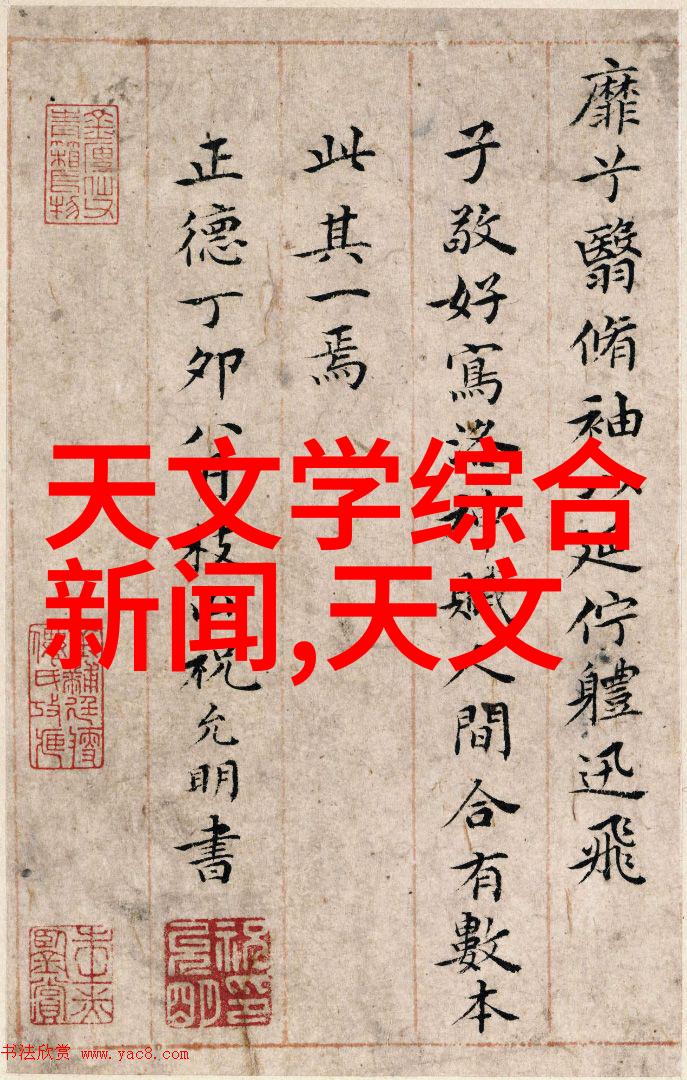 靡兮翳脩袖以延佇體迅飛
子敬好寫洛神賦人間合有數本
此其一焉
正德丁卯八月枝山祝允明書
天文学综合
新闻,天文
书法欣赏 www.yac8.com